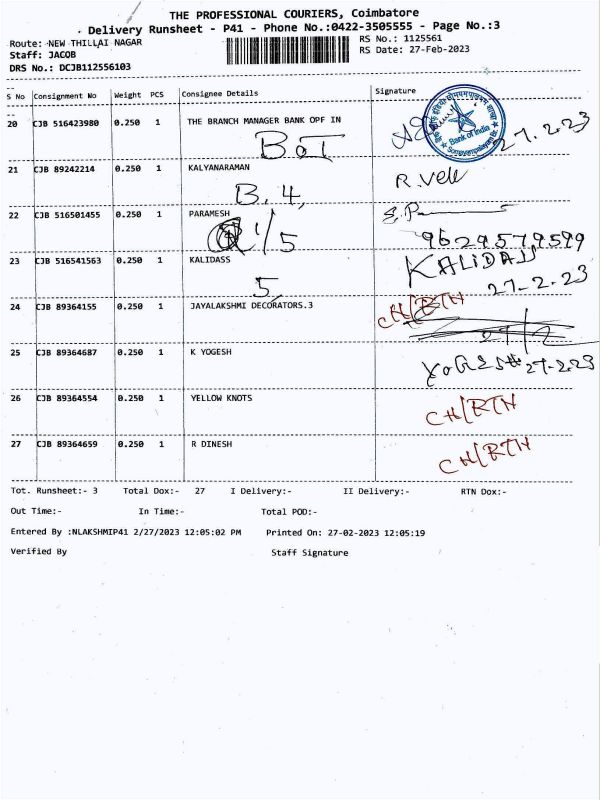 THE PROFESSIONAL COURIERS, Coimbatore
Delivery Runsheet - P41 - Phone No.:0422-3505555 - Page No.:3
Route: NEW THILLAI NAGAR
RS No.: 1125561
Staff: JACOB
RS Date: 27-Feb-2023
DRS No.: DCJB112556103
S No Consignment No Weight PCS Consignee Details Signature
20 CJB 516423980 0.250 1 THE BRANCH MANAGER BANK OPF IN
BOI
Bank of India
27.2.23
21 CJB 89242214 0.250 1 KALYANARAMAN
B.4,
R.Vell
22 CJB 516501455 0.250 1 PARAMESH
1/5
9629579599
23 CJB 516541563 0.250 1 KALIDASS
5
KALIDASS
27-2.23
24 CJB 89364155 0.250 1 JAYALAKSHMI DECORATORS.3
CH/RTH
25 CJB 89364687 0.250 1 K YOGESH
YOGESH 27-2.23
26 CJB 89364554 0.250 1 YELLOW KNOTS
CH/RTH
27 CJB 89364659 0.250 1 R DINESH
CH/RTH
Tot. Runsheet:- 3 Total Dox:- 27 I Delivery:- II Delivery:- RTN Dox:-
Out Time:- In Time:- Total POD:-
Entered By :NLAKSHMIP41 2/27/2023 12:05:02 PM Printed On: 27-02-2023 12:05:19
Verified By Staff Signature